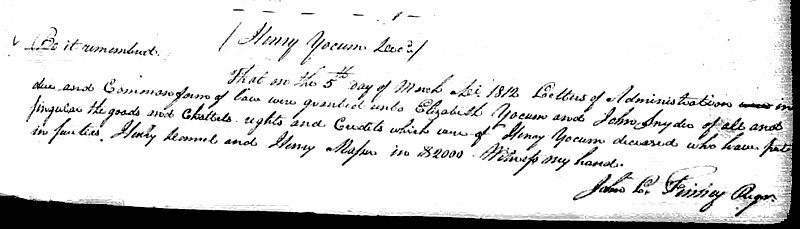 (Henry Yocum Decd.)
Be it remembred
That on the 5th day of March Ad. 1812 Letters of Administration in
due and Common form of law were granted unto Elizabeth Yocum and John Snyder of all and
singular the goods and Chattels rights and Credits which were of Henry Yocum deceased who have put
in sureties. Henry and Henry Masser in $2000. Witness my hand.
John Finney Regr.